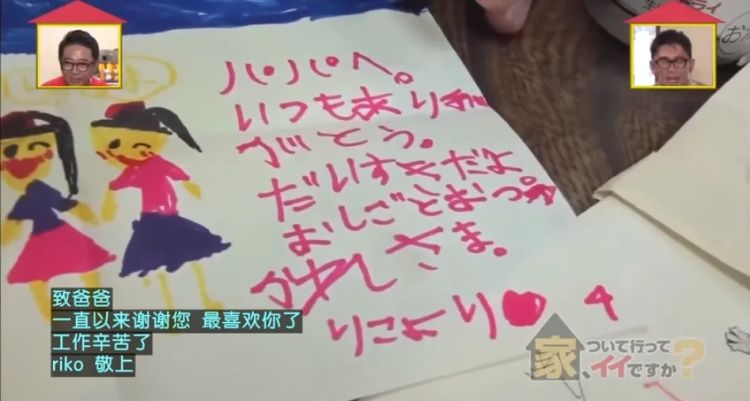 パパへ。
いつもあり
がとう。
だいすきだよ
おしごとおつ
かれさま。
りこより❤
致爸爸
一直以来谢谢您 最喜欢你了
工作辛苦了
riko 敬上
家、ついて行ってイイですか?